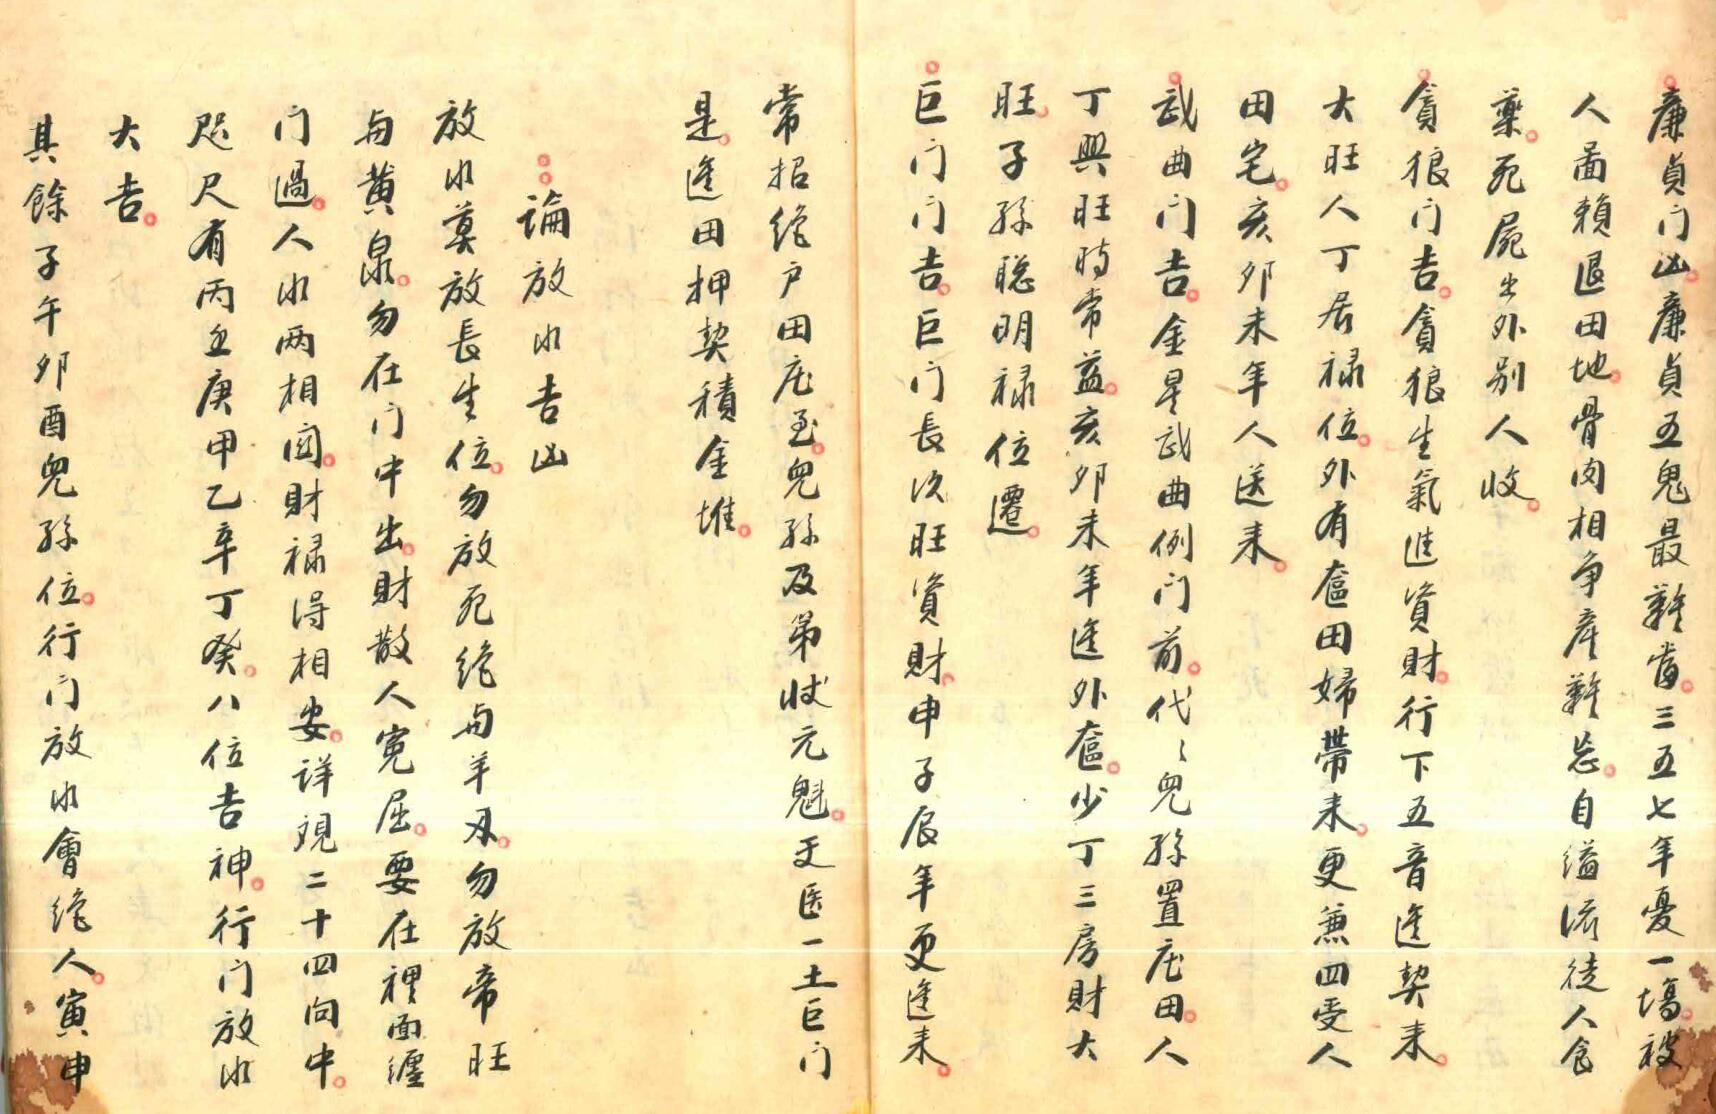 廉貞门凶廉貞五鬼最難當三五七年憂一塲被
人啚賴退田地骨肉相争產難忘自縊流徒人食
藥死屍出外别人收
貪狼门吉貪狼生氣進資財行下五音進契来
大旺人丁居禄位外有奩田婦帶来更兼四受人
田宅亥卯未年人送来
武曲门吉金星武曲例门前代〻兒孫置庄田人
丁興旺時常益亥卯未年進外奩少丁三房財大
旺子孫聪明禄位遷
巨门门吉巨门長次旺資財申子辰年更進来
常招绝户田庄至兒孫及第状元魁更医一土巨门
是進田押契積金堆
論放水吉凶
放水莫放長生位勿放死绝与羊刃勿放帝旺
与黄泉勿在门中出財散人寃屈要在裡面纏
门過人水两相図財禄得相安详視二十四向中
咫尺有丙壬庚甲乙辛丁癸八位吉神行门放水
大吉
其餘子午卯酉兒孫位行门放水會绝人寅申